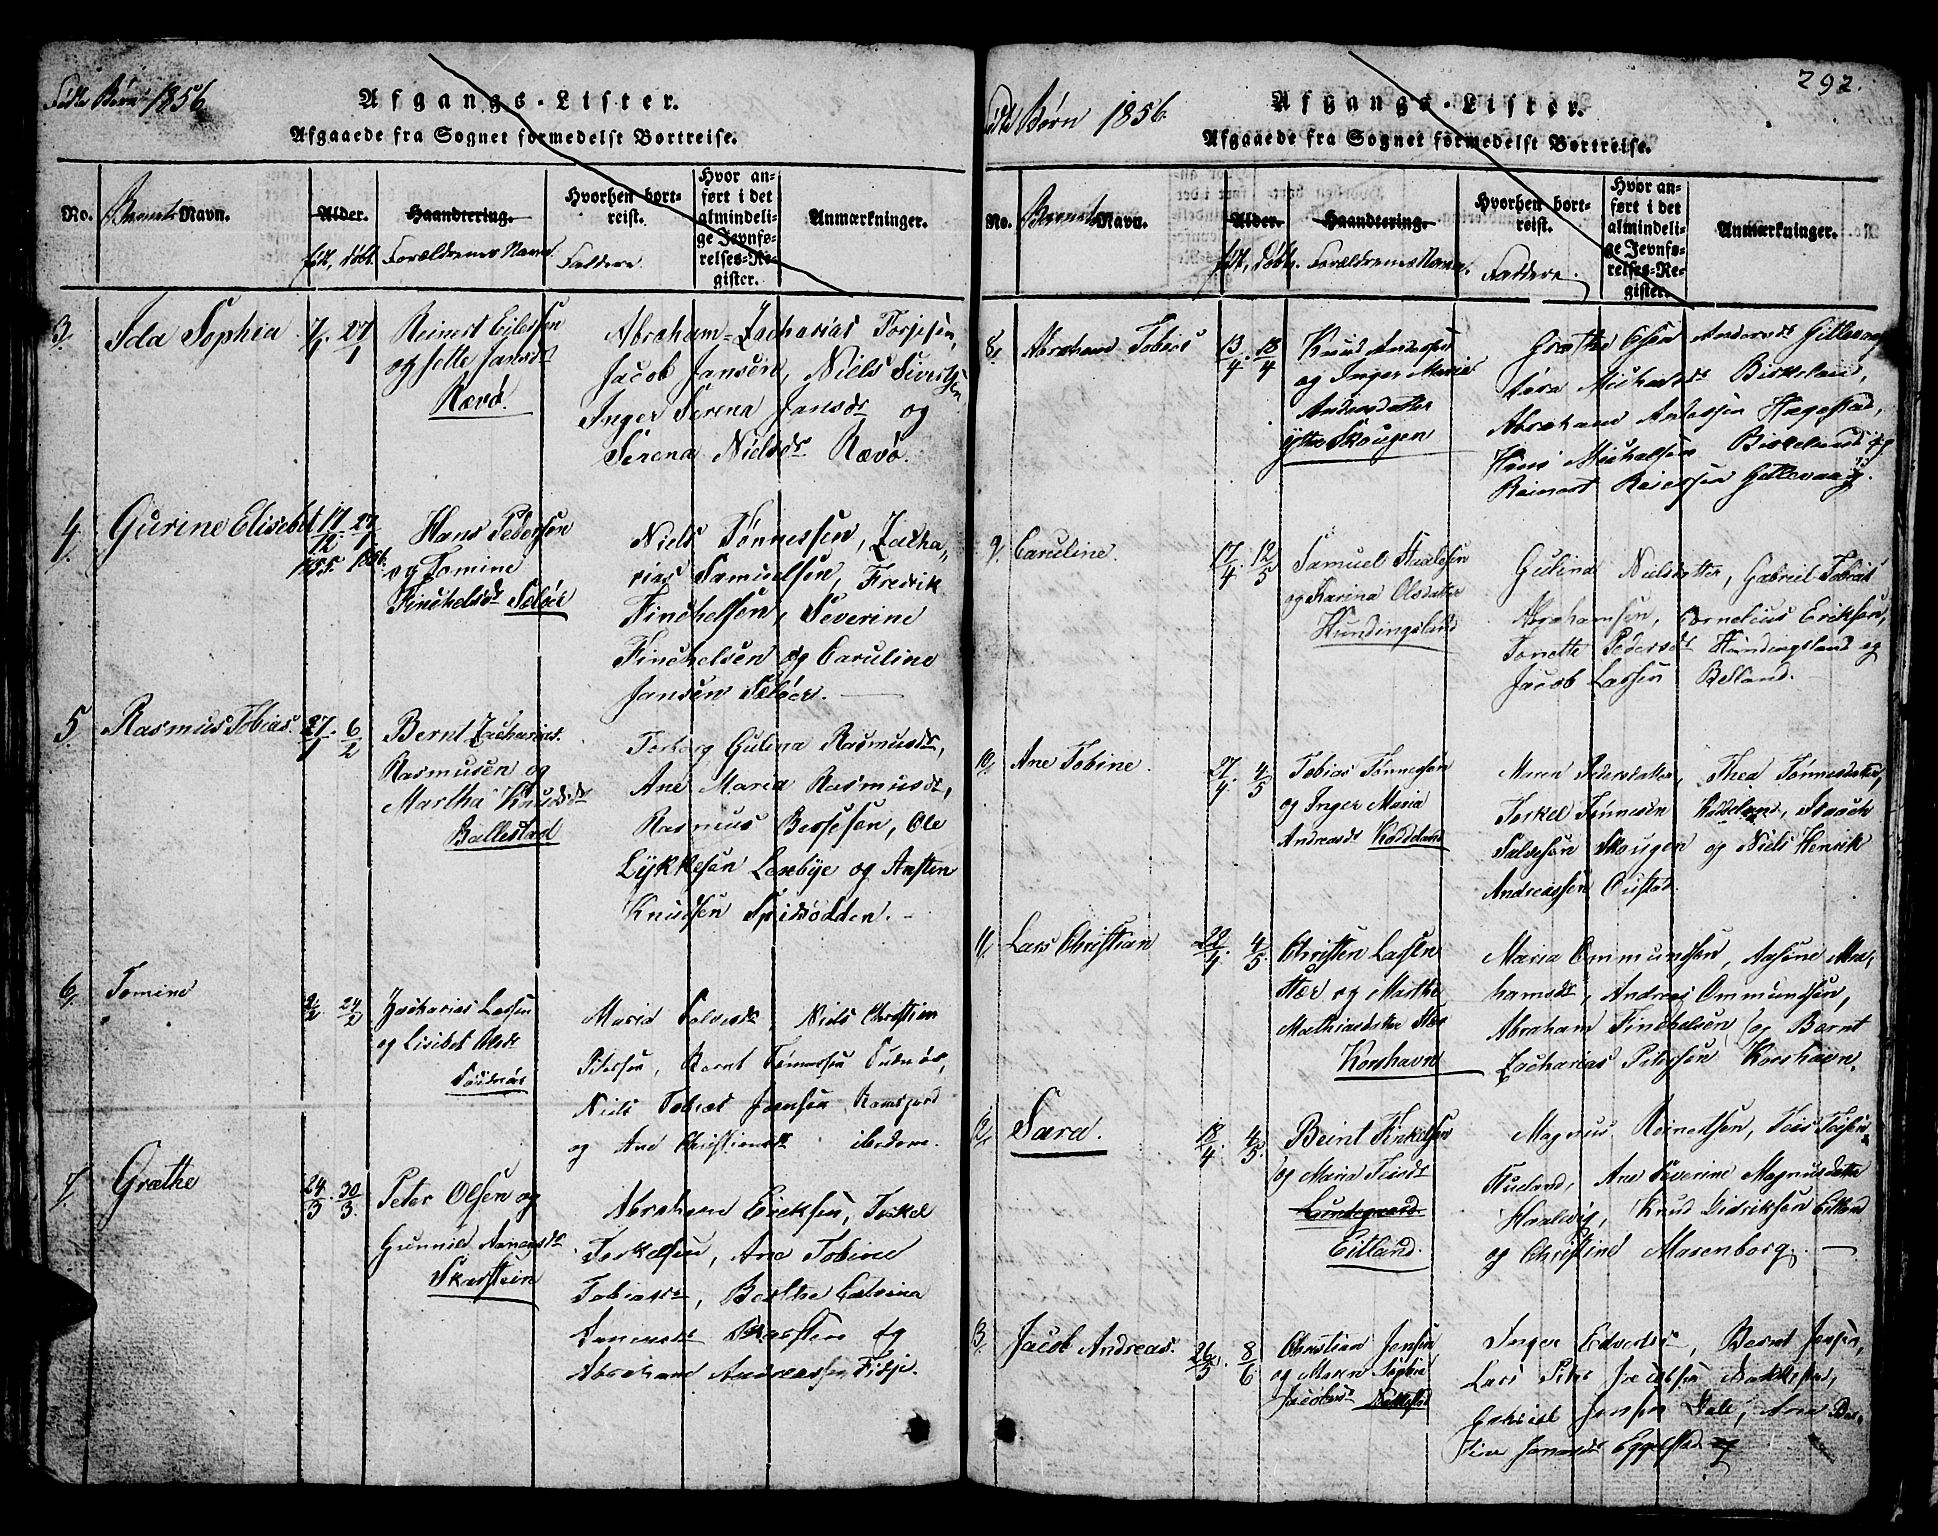 Fødte Børn 1856
Afgangs-Lister.
Afgaaede fra Sognet formedelst Bortreise.
No.
Barnets Navn.
Alder.
født, døbt.
Haandtering.
Forældrenes Navne
Hvorhen bort-
reist.
Faddere.
Hvor an-
ført i det
almindeli-
ge Jevnfø-
relses-Re-
gister.
Anmærkninger.
3.
Ida Sophia
7/1. 27/1
Reinert Eilertsen
og Jette Jansdr
Rævø.
Abraham Zacharias Torjesen,
Jacob Jansen, Niels Sivertsen
Inger Serena Jansdr og
Serena Nielsdr Rævø.
4.
Gurine Elisebet
17/12. 27/1.
1855. 1856.
Hans Pedersen
og Tomine
Finckelsdr Seløer
Niels Tønnessen, Zacha-
rias Samuelsen, Fredrik
Finckelsen, Severine
Finckelsen og Caruline
Jansen Seløer.
5.
Rasmus Tobias.
27/1. 6/2
Bernt Zacharias
Rasmusen og
Martha Knudsdr
Ballestad
Torborg Gulina Rasmusdr,
Ane Maria Rasmusdr,
Rasmus Bessesen, Ole
Lykkesen Lonebye og Austen
Knudsen Spidsodden.
6.
Tomine
2/2 24/2
Zacharias Lassen
og Lisebet Olsdr
Maria Salvesdr, Niels Christian
Petersen, Bernt Tønnessen
Niels Tobias Jensen
og Ane Christiansdr ibidem.
7.
Grethe
24/3. 30/3.
Peter Olsen og
Gunnild Aanensdr
Skarstein
Abraham Ericksen, Torkel
Torkelsen, Ane Tobine
Tobiasdr, Berthe Calvina
og
Abraham Andreassen Fidje.
292.
Fødte Børn 1856
Afgangs-Lister.
Afgaaede fra Sognet formedelst Bortreise.
No.
Barnets Navn.
Alder.
født, døbt.
Haandtering.
Forældrenes Navne.
Hvorhen bort-
reist.
Faddere.
Hvor an-
ført i det
almindeli-
ge Jevnfø-
relses-Re-
gister.
Anmærkninger.
8.
Abraham Tobias
13/4. 18/4
Knud Andersen
og Inger Marie
Andersdatter
ytre Skougen
Grethe Elsen Andersdr Gitlevaag
Michaelsdr Birkeland,
Abraham Antossen Hægestad,
Hans Michalsen Birkeland og
Reinert Reiersen Gitlevaag.
9.
Caruline.
17/4. 12/5
Samuel Staalesen
og Karina Olsdatter
Hundingsland
Gulina Nielsdatter, Gabriel Tobias
Abrahamsen, Cornelius Eriksen,
Tonette Pedersdr Hundingsland og
Jacob Lassen Belland.
10.
Ane Tobine.
27/4. 4/5
Tobias Tønnessen
og Inger Maria
Andreasdr Koddeland
Maren Pedersdatter, Thea Tønnesdatter,
Torkel Tønnesen Koddeland, Isaack
Salvesen Skougen og Niels Henrik
Andreassen Oustad.
11.
Lars Christian
22/4. 4/5
Christen Lassen
Stær og Marthe
Mathiasdatter Stær
Korshavn
Maria Ommundsen, Aasine Abra-
hamsdr, Andreas Ommundsen,
Abraham Finckelsen og Bernt
Zacharias Petersen Korshavn.
12.
Sara.
18/4. 4/5.
Beint Finkelsen
og Maria Teisdr
Lundegaard
Eitland.
Magnus Reinertsen, Teis Teisen
Stueland, Ane Severine Magnusdatter
Haalvig, Knud Didriksen Eitland
og Christine Masenborg.
3.
Jacob Andreas.
26/5. 8/6
Christian Jensen
og Maren Sophie
Jacobsdr Nakkestad
Inger Edvardsdr, Bernt Jensen,
Lars Peter Jacobsen Nakkestad,
Gabriel Jensen Dale, Ane Ber-
tine Jonasdr Eggelstad